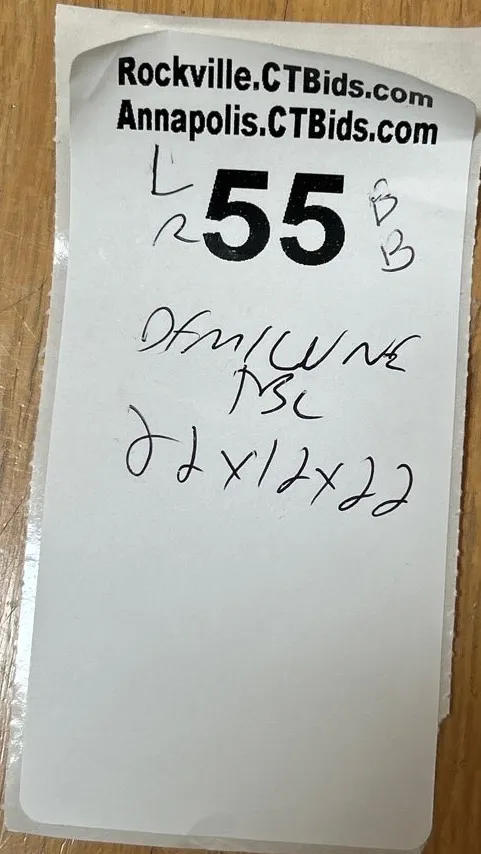 Rockville.CTBids.com
Annapolis.CTBids.com
L 55 B
R B
DEMILUNE
TBL
22x12x22